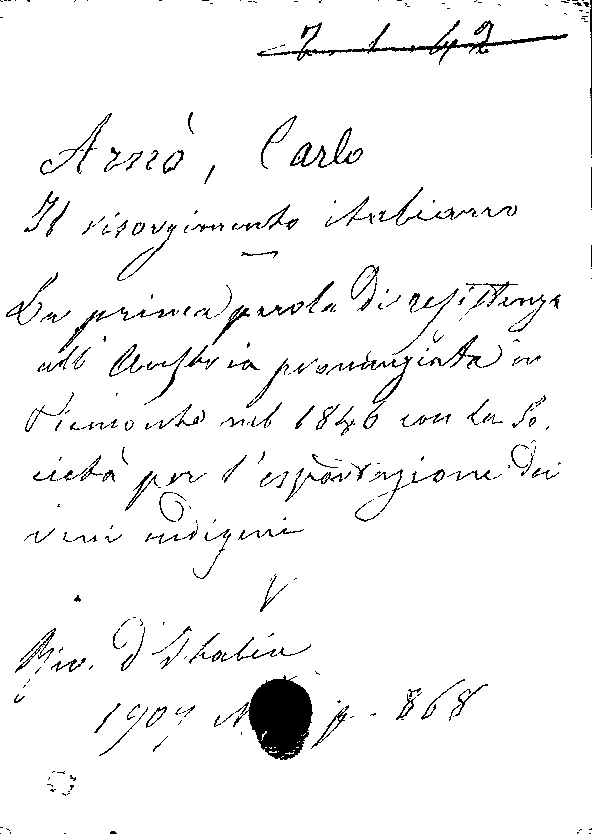 7. 1. 42
Arnò, Carlo
Il risorgimento italiano
La prima parola di resistenza
all' Austria pronunziata in
Piemonte nel 1846 con la So-
cietà per l'esportazione dei
vini indigeni
V
Riv. d'Italia
1907 p. 868